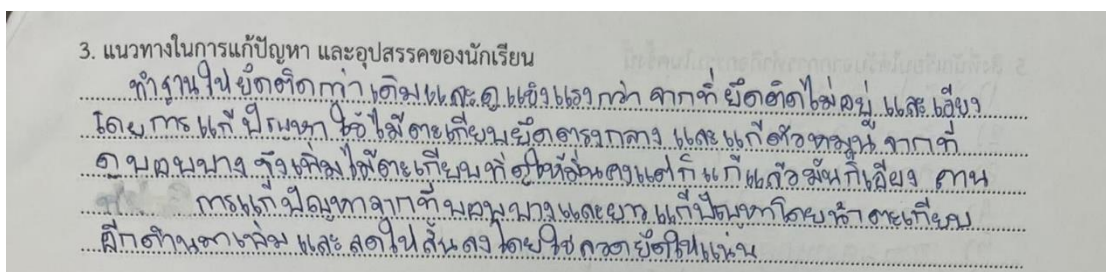 3. แนวทางในการแก้ปัญหา และอุปสรรคของนักเรียน
ทำฐานให้ยึดติดกว่าเดิมและดูแข็งแรงกว่า จากที่ยึดติดไม่อยู่ และเอียง
โดยการแก้ปัญหา ใช้ไม้ตะเกียบยึดตรงกลาง และแก้ตัวหมุน จากที่
ดูบอบบาง จึงเพิ่มไม้ตะเกียบที่ดูให้มั่นคงแต่ก็แก้แล้วมันก็เอียง คาน
การแก้ปัญหาจากที่บอบบางและยาว แก้ปัญหาโดยนำตะเกียบ
อีกด้านมาเสริม และลดให้สั้นลงโดยใช้ลวดยึดให้แน่น